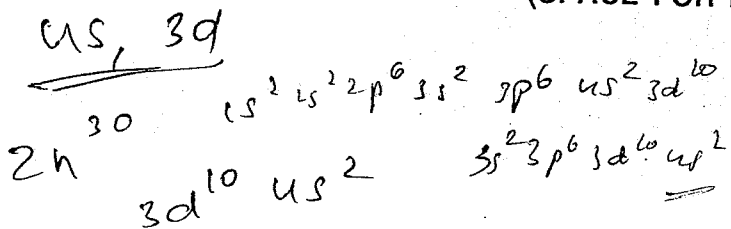 (SPACE FOR
4s, 3d
1s² 2s² 2p⁶ 3s² 3p⁶ 4s² 3d¹⁰
Zn³⁰
3d¹⁰ 4s² 3s² 3p⁶ 3d¹⁰ 4s²